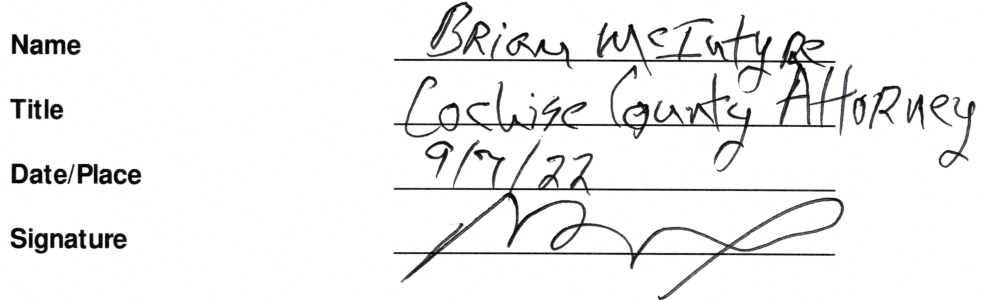 Name Brian McIntyre
Title Cochise County Attorney
Date/Place 9/7/22
Signature